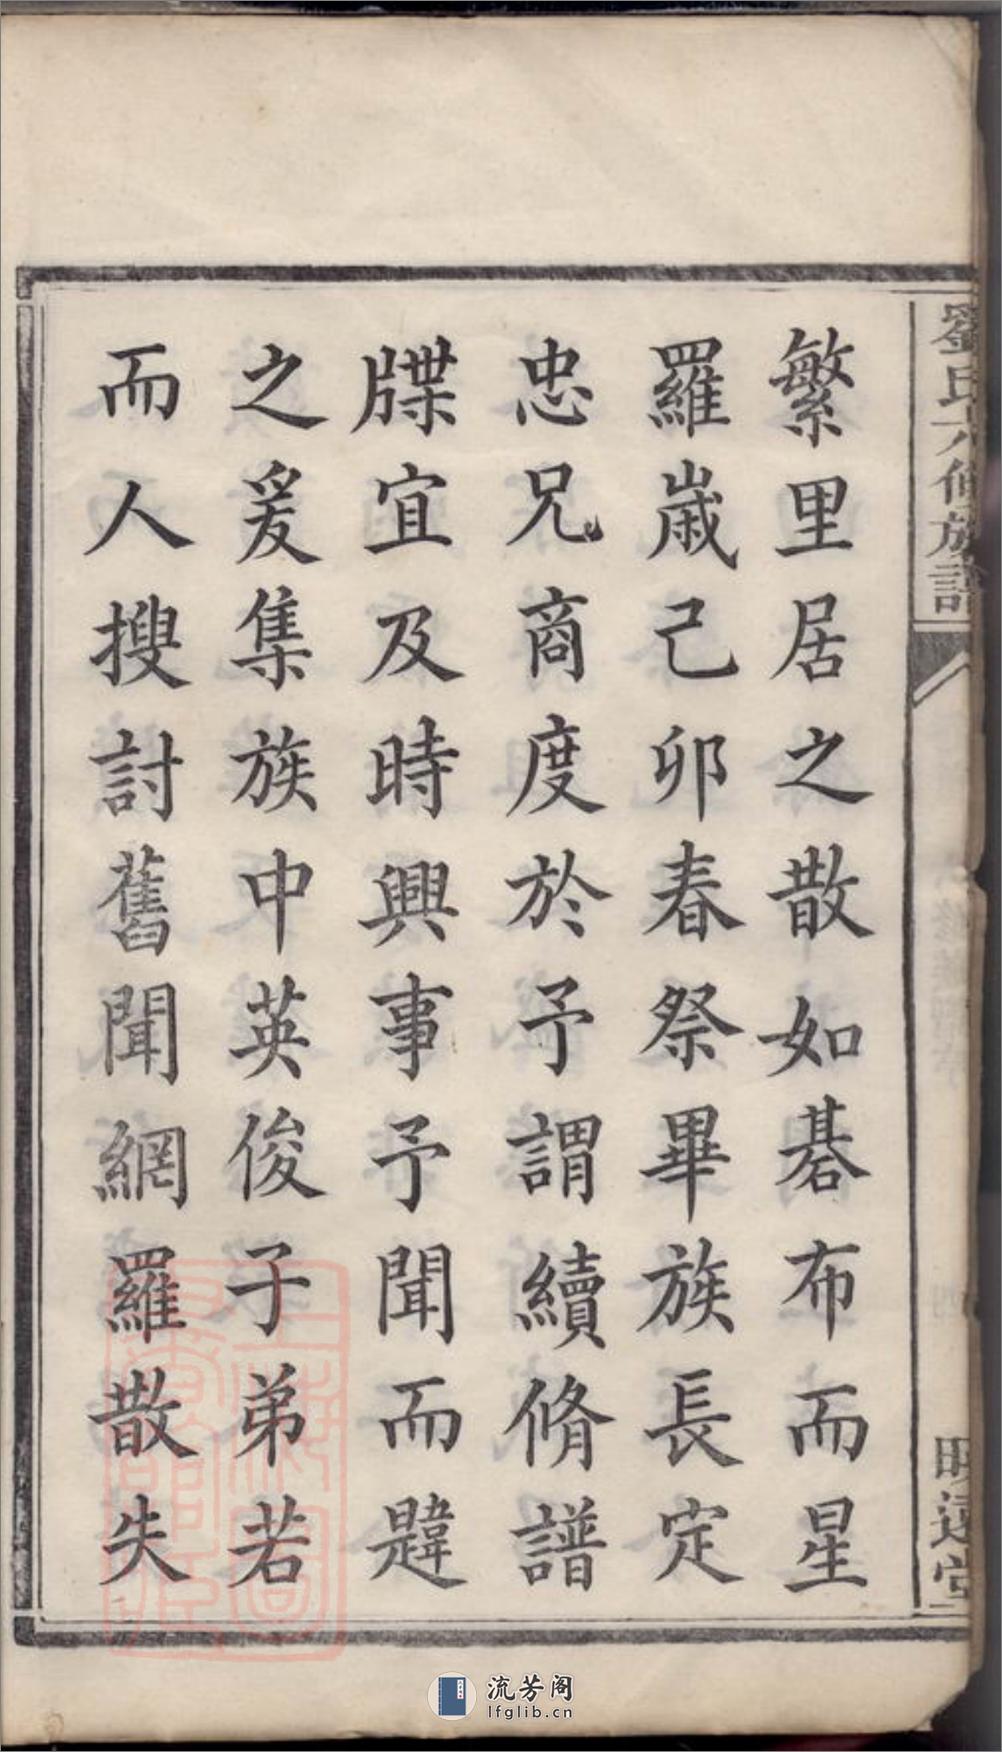 劉氏六修族譜
明遠堂
繁里居之散如碁布而星
羅歲己卯春祭畢族長定
忠兄商度於予謂續脩譜
牒宜及時興事予聞而韙
之爰集族中英俊子弟若
而人搜討舊聞網羅散失
流芳阁
lfglib.cn